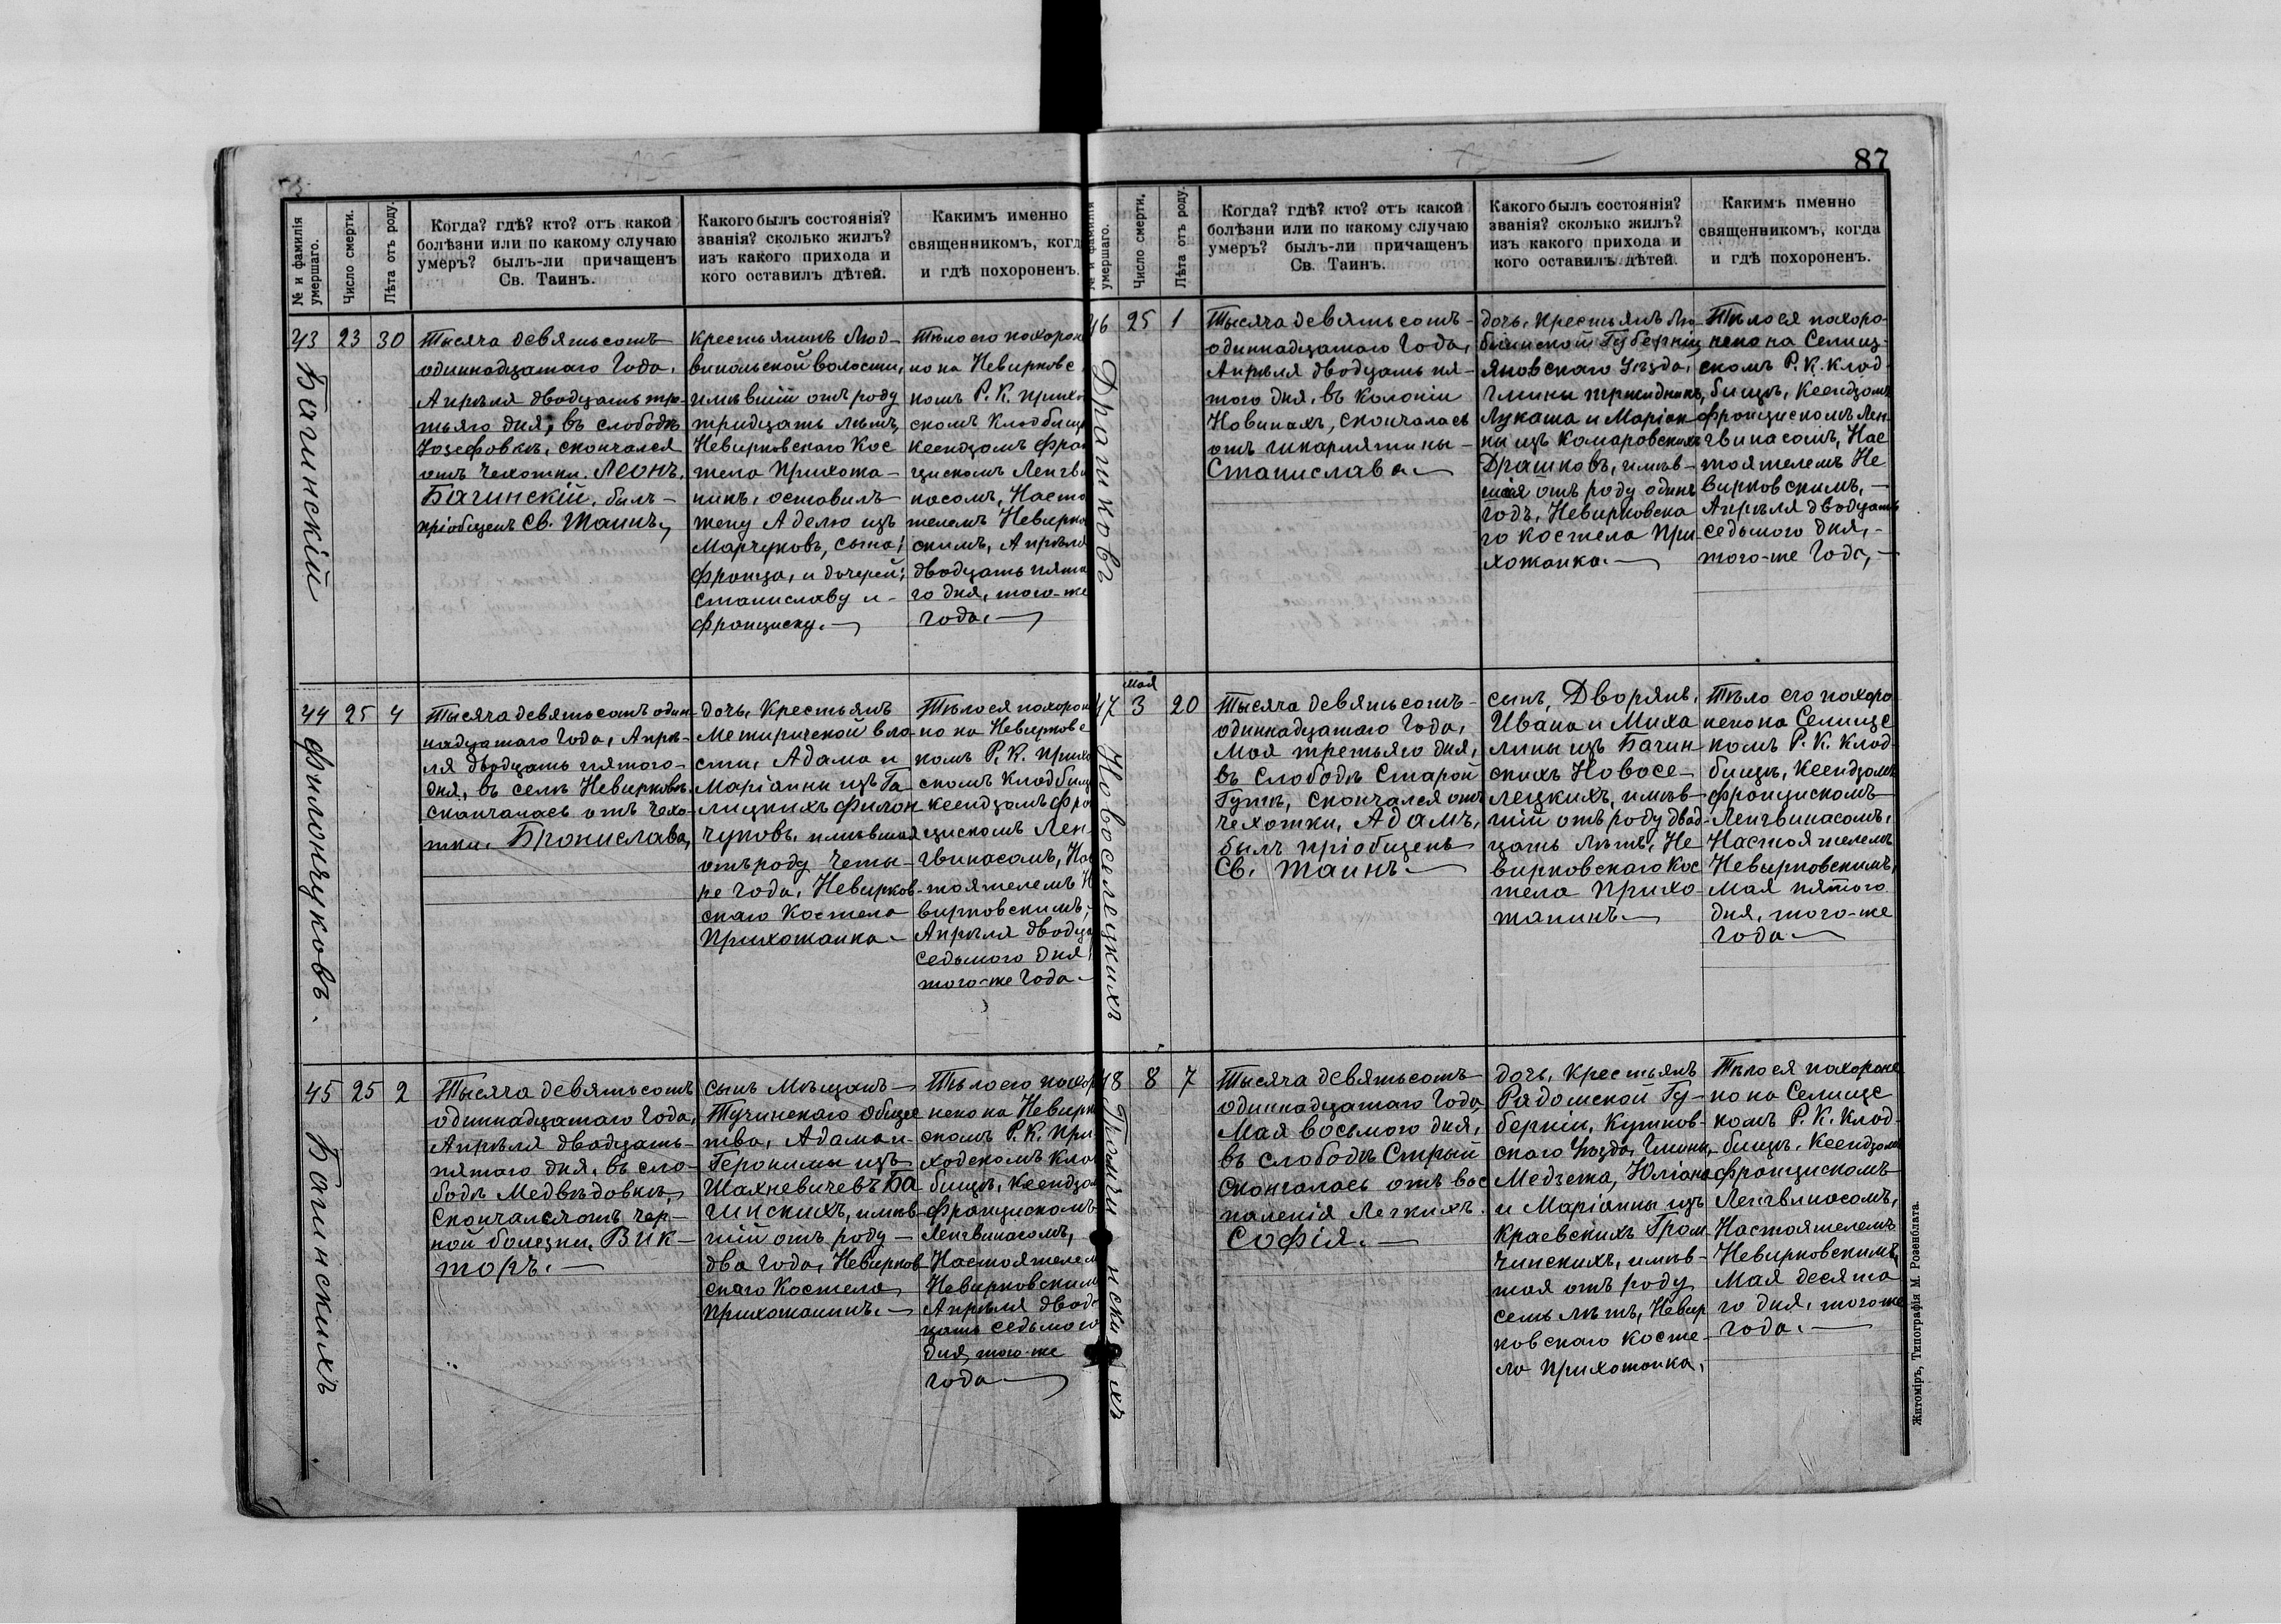 87
№ и фамилія
умершаго.
Число смерти.
Лѣта отъ роду.
Когда? гдѣ? кто? отъ какой
болѣзни или по какому случаю
умеръ? былъ-ли причащенъ
Св. Таинъ.
Какого былъ состоянія?
званія? сколько жилъ?
изъ какого прихода и
кого оставилъ дѣтей.
Каким​ъ именно
священникомъ, когда
и гдѣ похороненъ.
43
Багинскій
23
30
Тысяча девятьсотъ
одиннадцатаго Года,
Апрѣля двадцать тре-
тьяго дня, въ слободѣ
Юзефовкѣ, скончался
отъ Чехотки. Леонъ
Багинскій, былъ –
пріобщенъ Св. Таинъ,
крестьянинъ Люд-
випольской волости,
имѣвшій отъ роду
тридцать лѣтъ,
Невирковскаго Кос
тела Прихожа-
нинъ, оставилъ
жену Аделю изъ
Марчуковъ, сына;
Франца, и дочерей;
Станиславу и –
Франциску. –
Тѣло его похорон
но на Невирковс
комъ Р. К. прихо
скомъ Кладбищ
Ксендзомъ Фран
цискомъ Ленгви
насомъ, Насто
телемъ Невирко
скимъ, Апрѣля
двадцать пята
го дня, того-же
года. –
44
Филончуковъ.
25
4
Тысяча девятьсотъ один-
надцатаго Года, Апрѣ-
ля двадцать пятого –
дня, въ селѣ Невирковѣ.
скончалась отъ чехо-
тки. Бронислава,
дочь, Крестьянъ
Межиричской вло-
сти, Адама и
Маріанны изъ Га-
лицкихъ Филон
чуковъ, имѣвшая
отъ роду четы-
ре года, Невирков-
скаго Костела
Прихожанка –
Тѣло ея похорон
но на Невирковс
комъ Р. К. Прихо
скомъ Кладбищ
ксендзомъ Фра
цискомъ Лен-
гвинасомъ, Нас
тоятелемъ Н
вирковскимъ,
Апрѣля двадца
седьмого дня
того-же Года –
45
Багинскихъ.
25
2
Тысяча девятьсотъ
одиннадцатаго Года,
Апрѣля двадцать –
пятаго дня, въ сло-
бодѣ Медвѣдовкѣ,
скончался отъ чер-
ной болезни, Вик-
торъ. –
сынъ Мѣщанъ –
Тучинскаго Общес
тва, Адама и –
Геронимы изъ
Шахневичевъ Ба
гинскихъ, имѣв-
шій отъ роду –
два года, Невирков
скаго Костела
Прихожанинъ. –
Тѣло его похор
нено на Невирк
скомъ Р. К. При
ходскомъ Клад
бищѣ, Ксендзом
Францискомъ
Ленгвинасомъ,
Настоятелем
Невирковским
Апрѣля двад-
цать седьмого
дня, того-же
года –
№ и фамилія
умершаго.
Число смерти.
Лѣта отъ роду.
Когда? гдѣ? кто? отъ какой
болѣзни или по какому случаю
умеръ? былъ-ли причащенъ
Св. Таинъ.
Какого былъ состоянія?
званія? сколько жилъ?
изъ какого прихода и
кого оставилъ дѣтей.
Какимъ именно
священникомъ, когда
и гдѣ похороненъ.
46
Драшковъ
25
1
Тысяча девятьсотъ –
одиннадцатаго Года,
Апрѣля двадцать пя-
того дня, въ колоніи
Новинахъ, скончалась
отъ шкарлятины –
Станислава. –
дочь, Крестьянъ Лю-
блинской Губерніи,
Яновскаго Уѣзда,
Гмины
Лукаша и Маріан-
ны изъ Комаровскихъ
Драшковъ, имѣв-
шая отъ роду одинъ
Годъ, Невирковска
го костела При-
хожанка. –
Тѣло ея похоро-
нено на Селищ-
скомъ Р. К. Клад-
бищѣ, Ксендзомъ
Францискомъ Лен-
гвинасомъ, Нас
тоятелемъ Не
вирковскимъ, –
Апрѣля двадцать
седьмого дня, –
того-же Года, –
47
Новоселецкихъ
мая
3
20
Тысяча девятьсотъ –
одиннадцатаго Года,
Мая третьяго дня,
въ слободѣ Старой
Гутѣ, скончался отъ
чехотки, Адамъ,
былъ пріобщенъ
Св. Таинъ. –
сынъ, Дворянъ,
Ивана и Миха
лины изъ Багин-
скихъ Новосе-
лецкихъ, имѣв-
шій отъ роду двад-
цать лѣтъ, Не
вирковскаго Кос
тела Прихо-
жанинъ. –
Тѣло его похоро
нено на Селищс
комъ Р. К. Клад-
бищѣ, Ксендзомъ
Францискомъ
Ленгвинасомъ,
Настоятелемъ
Невирковскимъ,
Мая пятого
дня, того-же
Года –
48
Громчинскихъ
8
7
Тысяча девятьсотъ
одиннадцатаго Года
Мая восьмого дня,
въ слободѣ Стрый
Скончалась отъ вос
паленія Легкихъ.
Софія. –
дочь, Крестьянъ
Радомской Гу-
берніи,
скаго Уѣзда, Гмины,
Медзежа, Юліана
и Маріанны изъ
Краевскихъ Гром
чинскихъ, имѣв-
шая отъ роду
семь лѣтъ, Невир
ковскаго косте-
ла Прихожанка,
Тѣло ея похороне
но на Селищс
комъ Р. К. Клад-
бищѣ, Ксендзомъ
Францискомъ
Ленгвинасомъ,
Настоятелемъ
Невирковскимъ,
Мая десята
го дня, того-же
года. –
Житоміръ, Типографія М. Розенблата.